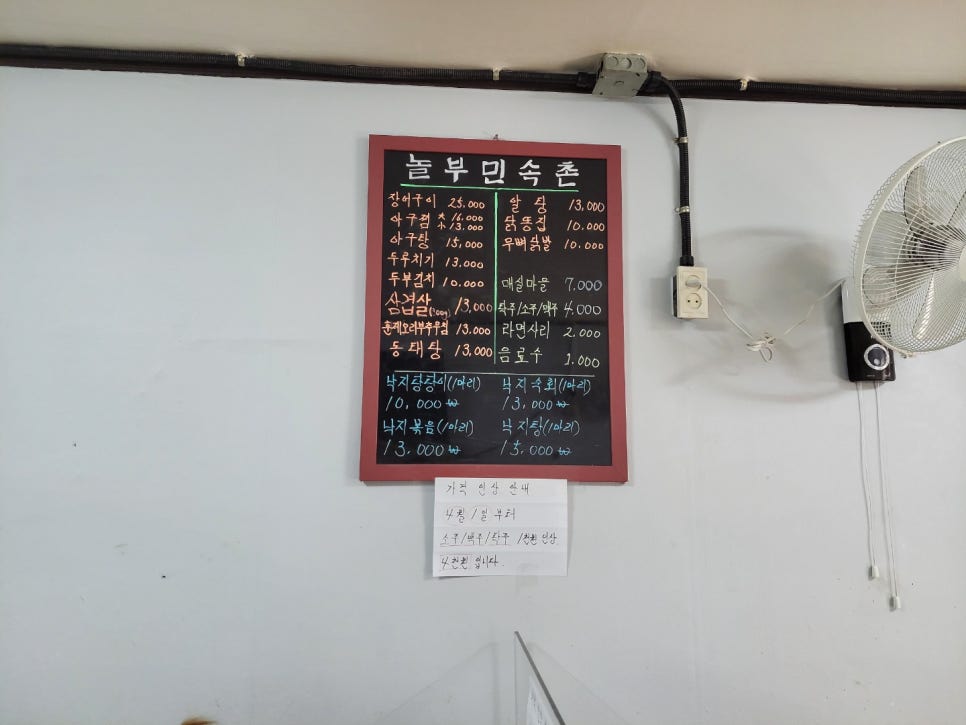 놀부민속촌
장어구이 25,000
아구찜 大 16,000
小 13,000
아구탕 15,000
두루치기 13,000
두부김치 10,000
삼겹살(200g) 13,000
훈제오리부추무침 13,000
동태탕 13,000
알탕 13,000
닭똥집 10,000
무뼈닭발 10,000
매실마을 7,000
탁주/소주/맥주 4,000
라면사리 2,000
음료수 1,000
낙지탕탕이(1마리)
10,000₩
낙지숙회(1마리)
13,000₩
낙지볶음(1마리)
13,000₩
낙지탕(1마리)
15,000₩
가격 인상 안내
4월 1일 부터
소주/맥주/탁주 1천원 인상
4천원 입니다.